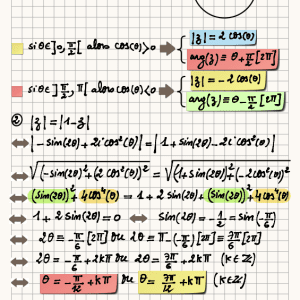 si θ ∈ ]0, π/2[ alors cos(θ) > 0 ⇒ { |z| = 2 cos(θ)
arg(z) ≡ θ + π/2 [2π]
si θ ∈ ]π/2, π[ alors cos(θ) < 0 ⇒ { |z| = -2 cos(θ)
arg(z) ≡ θ - π/2 [2π]
② |z| = |1-z|
⇔ |-sin(2θ) + 2i cos²(θ)| = |1 + sin(2θ) - 2i cos²(θ)|
⇔ √((-sin(2θ))² + (2 cos²(θ))²) = √((1 + sin(2θ))² + (-2 cos²(θ))²)
⇔ (sin(2θ))² + 4 cos⁴(θ) = 1 + 2 sin(2θ) + (sin(2θ))² + 4 cos⁴(θ)
⇔ 1 + 2 sin(2θ) = 0 ⇔ sin(2θ) = -1/2 = sin(-π/6)
⇔ 2θ ≡ -π/6 [2π] ou 2θ ≡ π - (-π/6) [2π] ≡ 7π/6 [2π]
⇔ 2θ = -π/6 + 2kπ ou 2θ = 7π/6 + 2kπ (k∈ℤ)
⇔ θ = -π/12 + kπ ou θ = 7π/12 + kπ (k∈ℤ)